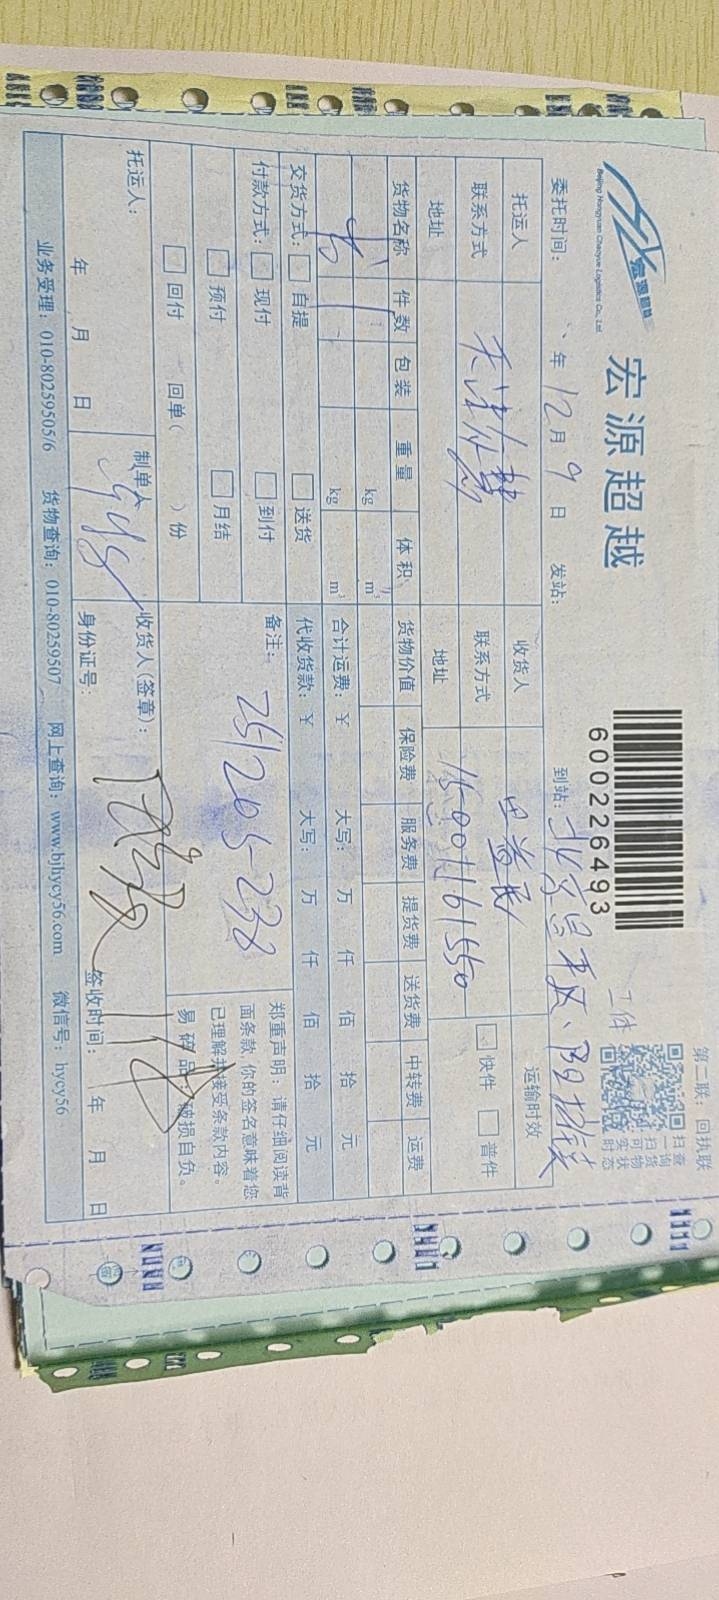 第二联：回执联
宏源超越
Beijing Hongyuan Chaoyue Logistics Co., Ltd.
宏源超越
6002226493
扫一扫
查询货物
可实时状态
委托时间： 年 12 月 9 日 发站： 到站：北京昌平区、阳坊镇
托运人 收货人 运输时效
联系方式 天津 联系方式 快件 普件
地址 地址 15001161550
货物名称 件数 包装 重量 体积 货物价值 保险费 服务费 提货费 送货费 中转费 运费
kg m³
kg m³ 合计运费：¥ 大写： 万 仟 佰 拾 元
交货方式： 自提 送货 代收货款：¥ 大写： 万 仟 佰 拾 元
付款方式： 现付 到付 备注： 251205-238
预付 月结
回付 回单( )份
郑重声明：请仔细阅读背
面条款，你的签名意味着您
已理解并接受条款内容。
易碎品，破损自负。
托运人： 制单人 收货人(签章)： 签收时间： 年 月 日
年 月 日 身份证号：
业务受理：010-80259505/6 货物查询：010-80259507 网上查询：www.bjhycy56.com 微信号：hycy56